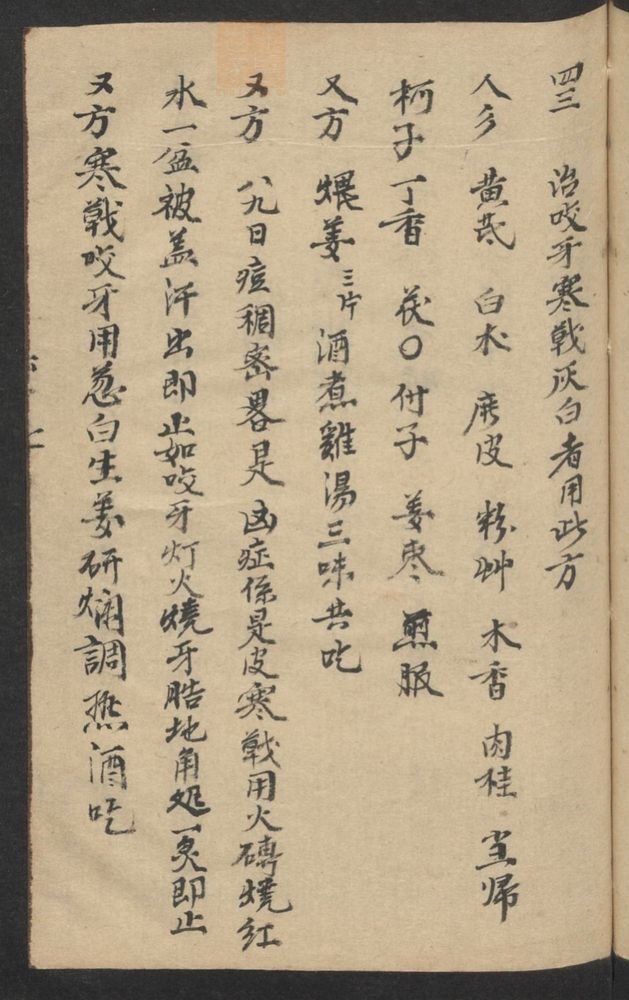 四三 治咬牙寒戰灰白者用此方
人參 黃芪 白朮 陳皮 粉艸 木香 肉桂 當歸
柯子 丁香 茯〇 付子 姜枣 煎服
又方 煨姜三片 酒煮雞湯三味共吃
又方 八九日痘稠密畧是凶症係是皮寒戰用火磚燒紅
水一盆被盖汗出即止如咬牙灯火燒牙䏦地角处一炙即止
又方寒戰咬牙用葱白生姜研爛調热酒吃